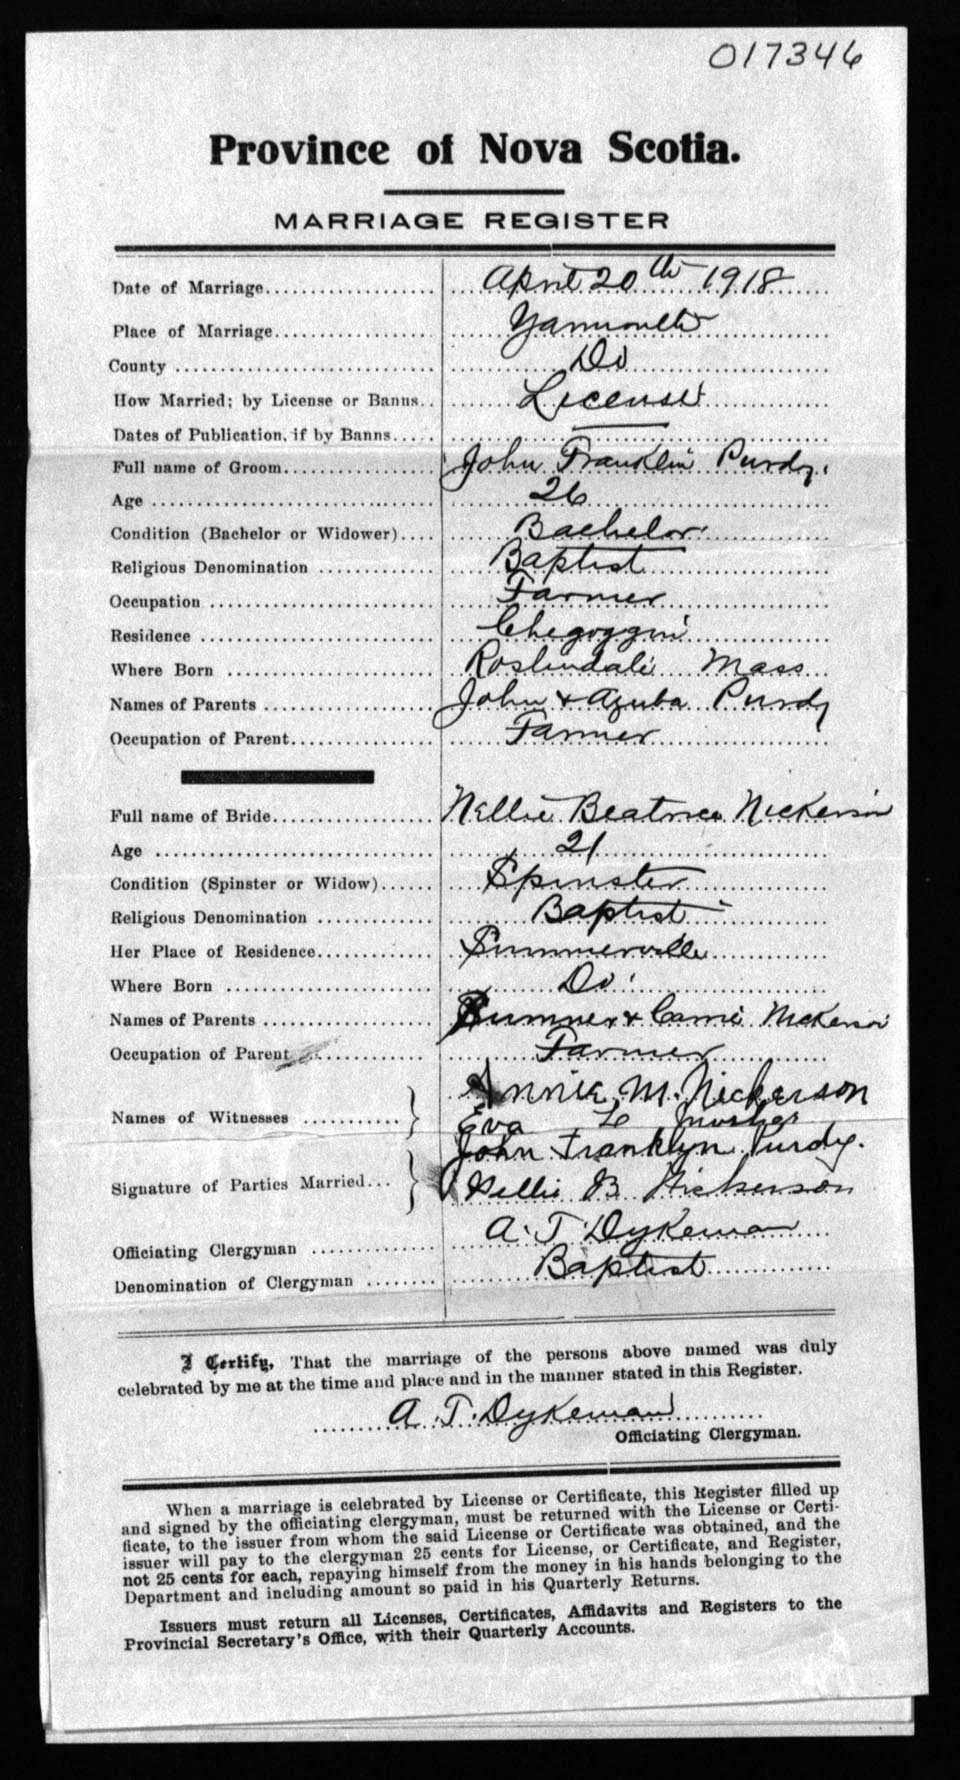 017346
Province of Nova Scotia.
MARRIAGE REGISTER
Date of Marriage.................... April 20th 1918
Place of Marriage................... Yarmouth
County ............................. Do
How Married; by License or Banns.. License
Dates of Publication, if by Banns.....
Full name of Groom.................. John Franklin Purdy.
Age ................................ 26
Condition (Bachelor or Widower).... Bachelor
Religious Denomination ............. Baptist
Occupation ......................... Farmer
Residence .......................... Chegoggin
Where Born ......................... Roslindale Mass
Names of Parents ................... John & Azuba Purdy
Occupation of Parent................ Farmer
Full name of Bride.................. Nellie Beatrice Nickerson
Age ................................ 21
Condition (Spinster or Widow)...... Spinster
Religious Denomination ............. Baptist
Her Place of Residence............. Summerville
Where Born ......................... Do
Names of Parents ................... Sumner & Carrie Nickerson
Occupation of Parent ............... Farmer
Annie M. Nickerson
Names of Witnesses ........... } Eva L Mosher
John Franklyn Purdy.
Signature of Parties Married... } Nellie B Nickerson
Officiating Clergyman .............. A. T. Dykeman
Denomination of Clergyman ........ Baptist
I Certify, That the marriage of the persons above named was duly
celebrated by me at the time and place and in the manner stated in this Register.
A. T. Dykeman
Officiating Clergyman.
When a marriage is celebrated by License or Certificate, this Register filled up
and signed by the officiating clergyman, must be returned with the License or Certi-
ficate, to the issuer from whom the said License or Certificate was obtained, and the
issuer will pay to the clergyman 25 cents for License, or Certificate, and Register,
not 25 cents for each, repaying himself from the money in his hands belonging to the
Department and including amount so paid in his Quarterly Returns.
Issuers must return all Licenses, Certificates, Affidavits and Registers to the
Provincial Secretary's Office, with their Quarterly Accounts.